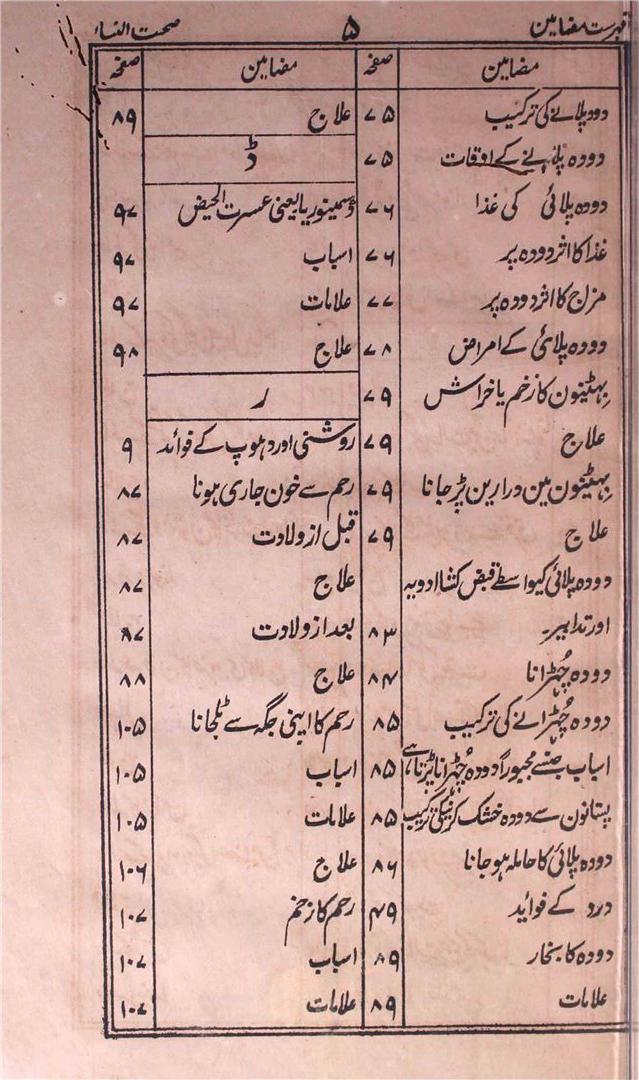 فہرست مضامین ۵ صحت النساء
مضامین صفحہ
دودہ پلانے کی ترکیب ۷۵
دودہ پلانے کے اوقات ۷۵
دودہ پلائی کی غذا ۷۶
غذا کا اثر دودہ پر ۷۶
مزاج کا اثر دودہ پر ۷۷
دودہ پلائی کے امراض ۷۸
بہٹنیون کا زخم یا خراش ۷۹
علاج ۷۹
بہٹنیون مین درارین پڑجانا ۷۹
علاج ۷۹
دودہ پلائی کیواسطے قبض کشا ادویہ
اور تدابیر۔ ۸۳
دودہ چُہڑانا ۸۴
دودہ چُہڑانے کی ترکیب ۸۵
اسباب جنسے مجبوراً دودہ چُہڑانا پڑتا ہے ۸۵
پستانون سے دودہ خشک کرنیکی ترکیب ۸۵
دودہ پلائی کا حاملہ ہوجانا ۸۶
درد کے فوائد ۴۹
دودہ کا بخار ۸۹
علامات ۸۹
مضامین صفحہ
علاج ۸۹
ڈ
ڈسمینوریا یعنی عسرت الحیض ۹۷
اسباب ۹۷
علامات ۹۷
علاج ۹۸
ر
روشنی اور دہوپ کے فوائد ۹
رحم سے خون جاری ہونا ۸۷
قبل از ولادت ۸۷
علاج ۸۷
بعد از ولادت ۸۷
علاج ۸۸
رحم کا اپنی جگہ سے ٹلجانا ۱۰۵
اسباب ۱۰۵
علامات ۱۰۵
علاج ۱۰۶
رحم کا زخم ۱۰۷
اسباب ۱۰۷
علامات ۱۰۷